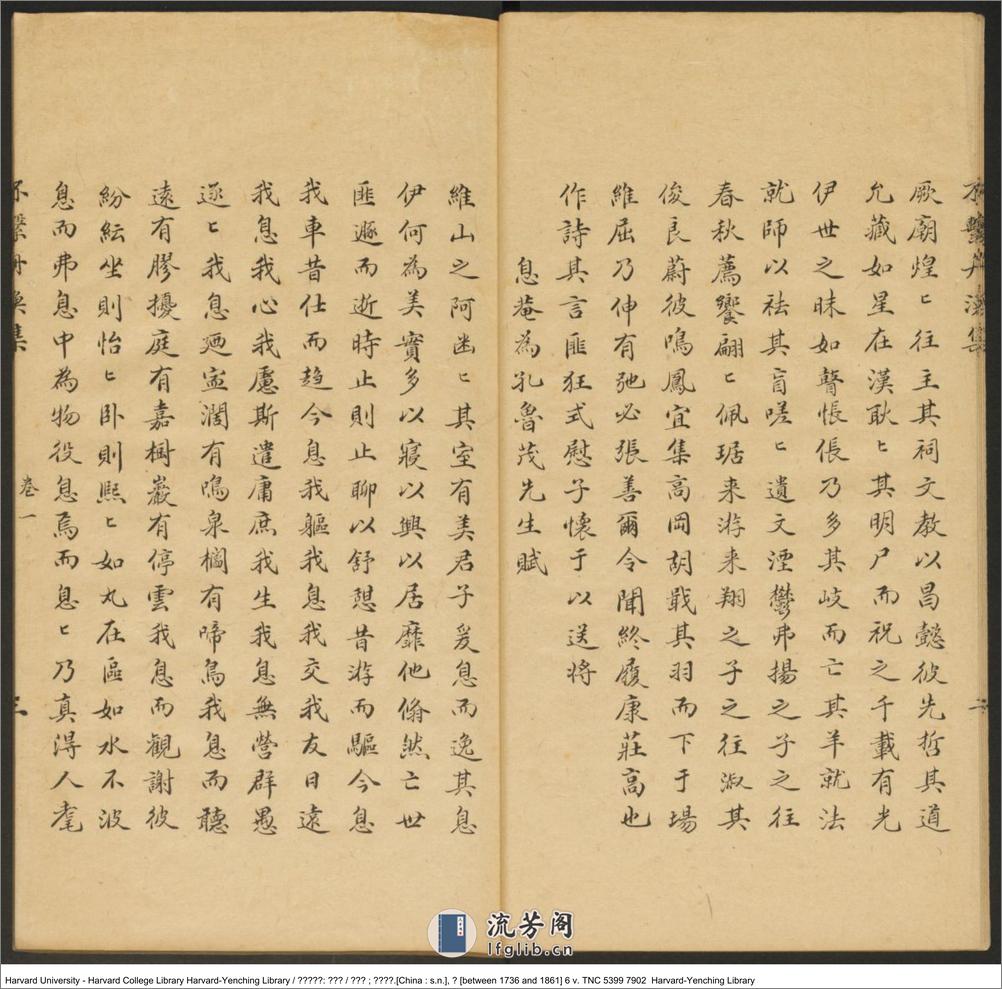 不繫舟漁集
厥廟煌〻往主其祠文教以昌懿彼先哲其道
允藏如星在漢耿〻其明尸而祝之千載有光
伊世之昧如瞽悵倀乃多其岐而亡其羊就法
就師以祛其盲嗟〻遺文湮鬱弗揚之子之往
春秋薦饗翩〻佩琚来游来翔之子之往淑其
俊良蔚彼鳴鳳宜集高岡胡戢其羽而下于塲
維屈乃伸有弛必張善爾令聞終履康莊高也
作詩其言匪狂式慰子懷于以送將
息菴為孔魯茂先生賦
二
維山之阿幽〻其室有美君子爰息而逸其息
伊何為美實多以寢以興以居靡他翛然亡世
匪遯而逝時止則止聊以舒憩昔游而驅今息
我車昔仕而趋今息我軀我息我交我友日遠
我息我心我慮斯遣庸庶我生我息無營群愚
逐〻我息廼寍澗有鳴泉櫩有啼鳥我息而聽
遠有膠擾庭有嘉樹巖有停雲我息而観謝彼
紛紜坐則怡〻卧則熙〻如丸在區如水不波
息而弗息中為物役息焉而息〻乃真淂人耄
不繫舟漁集
卷一
三
流芳阁
lfglib.cn
Harvard University - Harvard College Library Harvard-Yenching Library / ?????: ??? / ??? ; ????.[China : s.n.], ? [between 1736 and 1861] 6 v. TNC 5399 7902 Harvard-Yenching Library